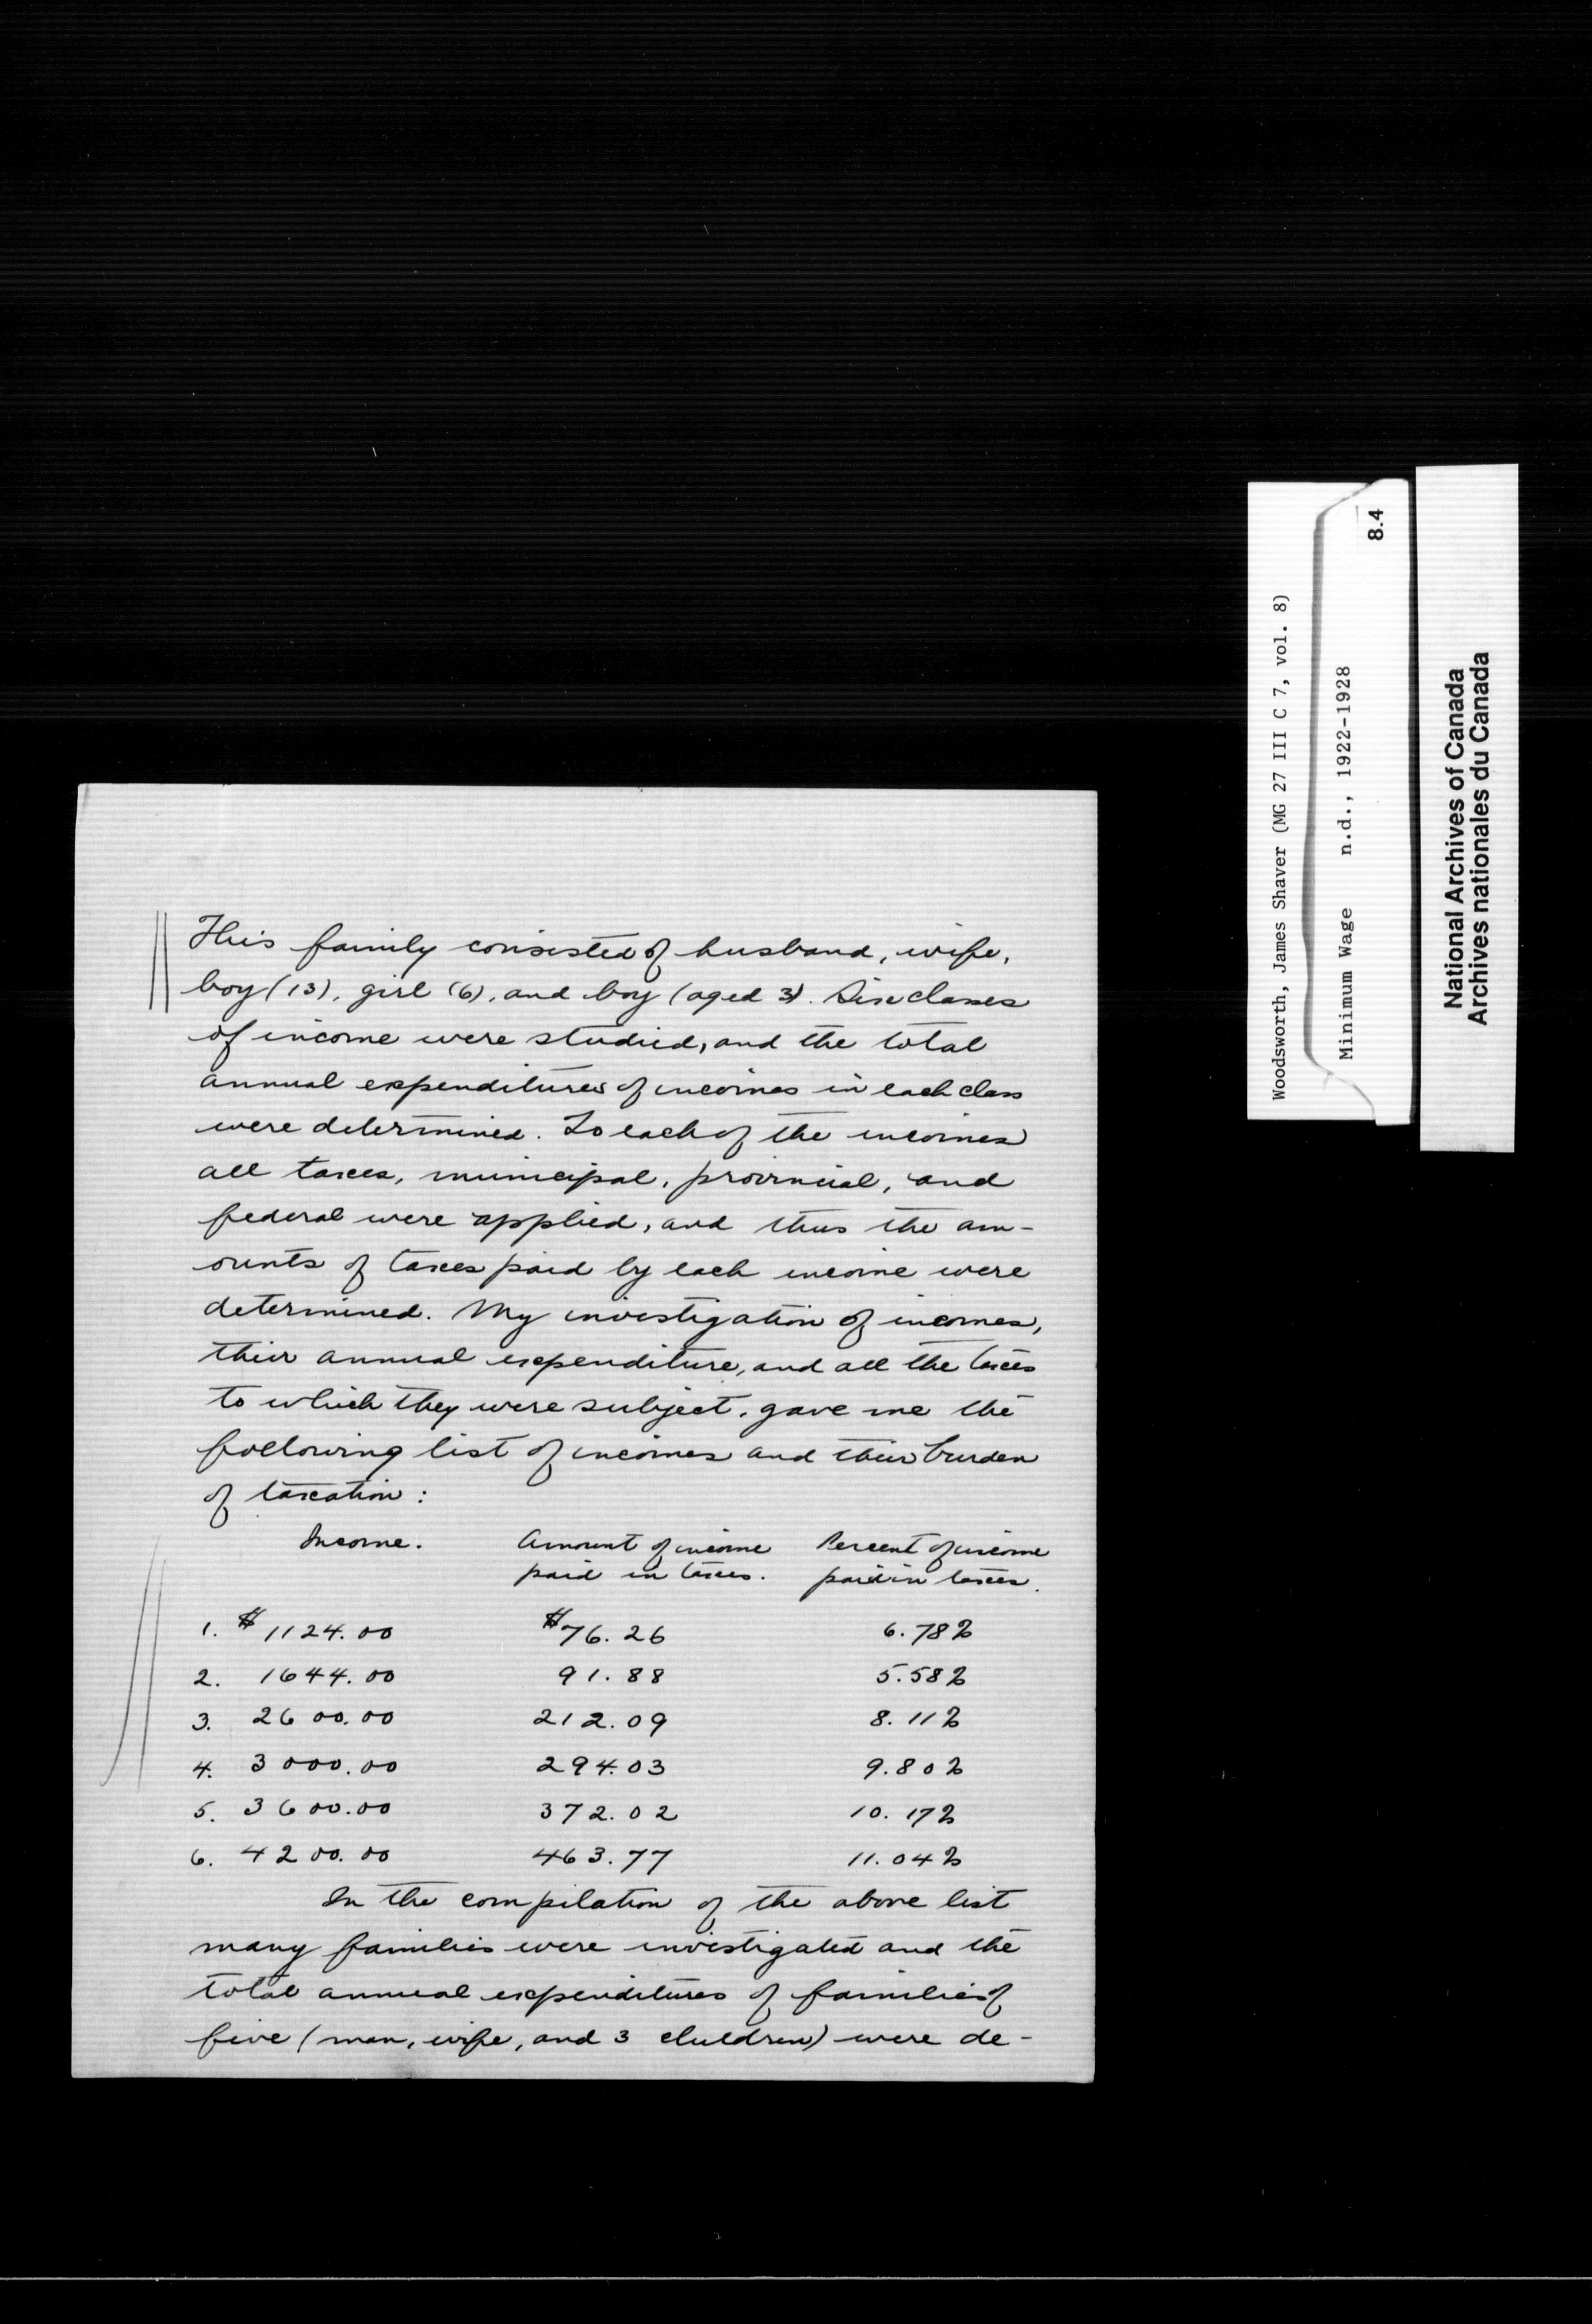 This family consisted of husband, wife,
boy (13), girl (6), and boy (aged 3). Six classes
of income were studied, and the total
annual expenditures of incomes in each class
were determined. To each of the incomes
all taxes, municipal, provincial, and
federal were applied, and thus the am-
ounts of taxes paid by each income were
determined. My investigation of incomes,
their annual expenditure, and all the taxes
to which they were subject, gave me the
following list of incomes and their burden
of taxation:
Income. Amount of income Percent of income
paid in taxes. paid in taxes.
1. $1124.00 $76.26 6.78%
2. 1644.00 91.88 5.58%
3. 2600.00 212.09 8.11%
4. 3000.00 294.03 9.80%
5. 3600.00 372.02 10.17%
6. 4200.00 463.77 11.04%
In the compilation of the above list
many families were investigated and the
total annual expenditures of families of
five (man, wife, and 3 children) were de-
Woodsworth, James Shaver (MG 27 III C 7, vol. 8)
Minimum Wage n.d., 1922-1928
8.4
National Archives of Canada
Archives nationales du Canada